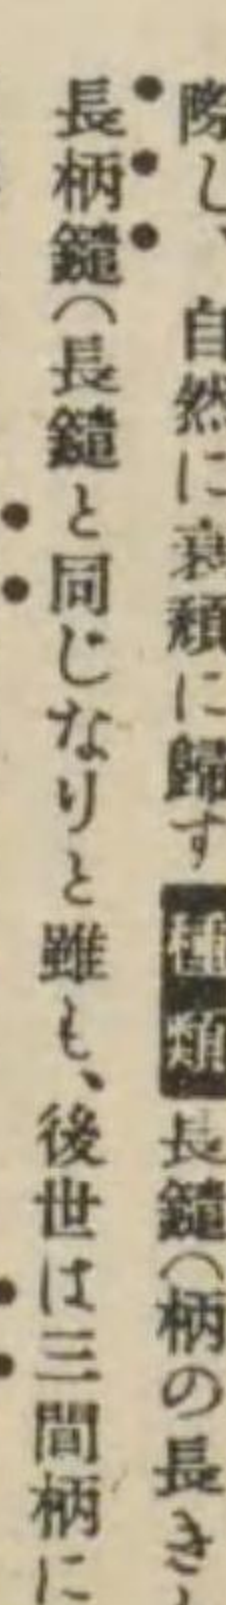 際し、自然に衰頽に歸す種類長鑓(柄の長き
長柄鑓(長鑓と同じなりと雖も、後世は三間柄に